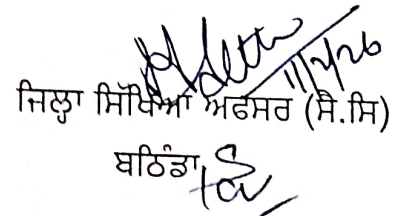 11/2/26
ਜਿਲ੍ਹਾ ਸਿੱਖਿਆ ਅਫਸਰ (ਸੈ.ਸਿ)
ਬਠਿੰਡਾ